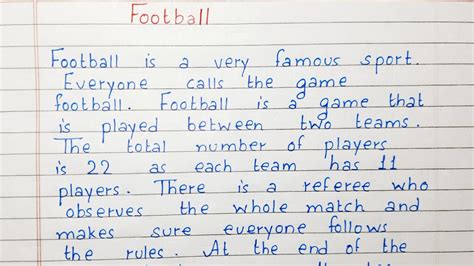 Football
Football is a very famous sport.
Everyone calls the game
football. Football is a game that
is played between two teams.
The total number of players
is 22 as each team has 11
players. There is a referee who
observes the whole match and
makes sure everyone follows
the rules. At the end of the